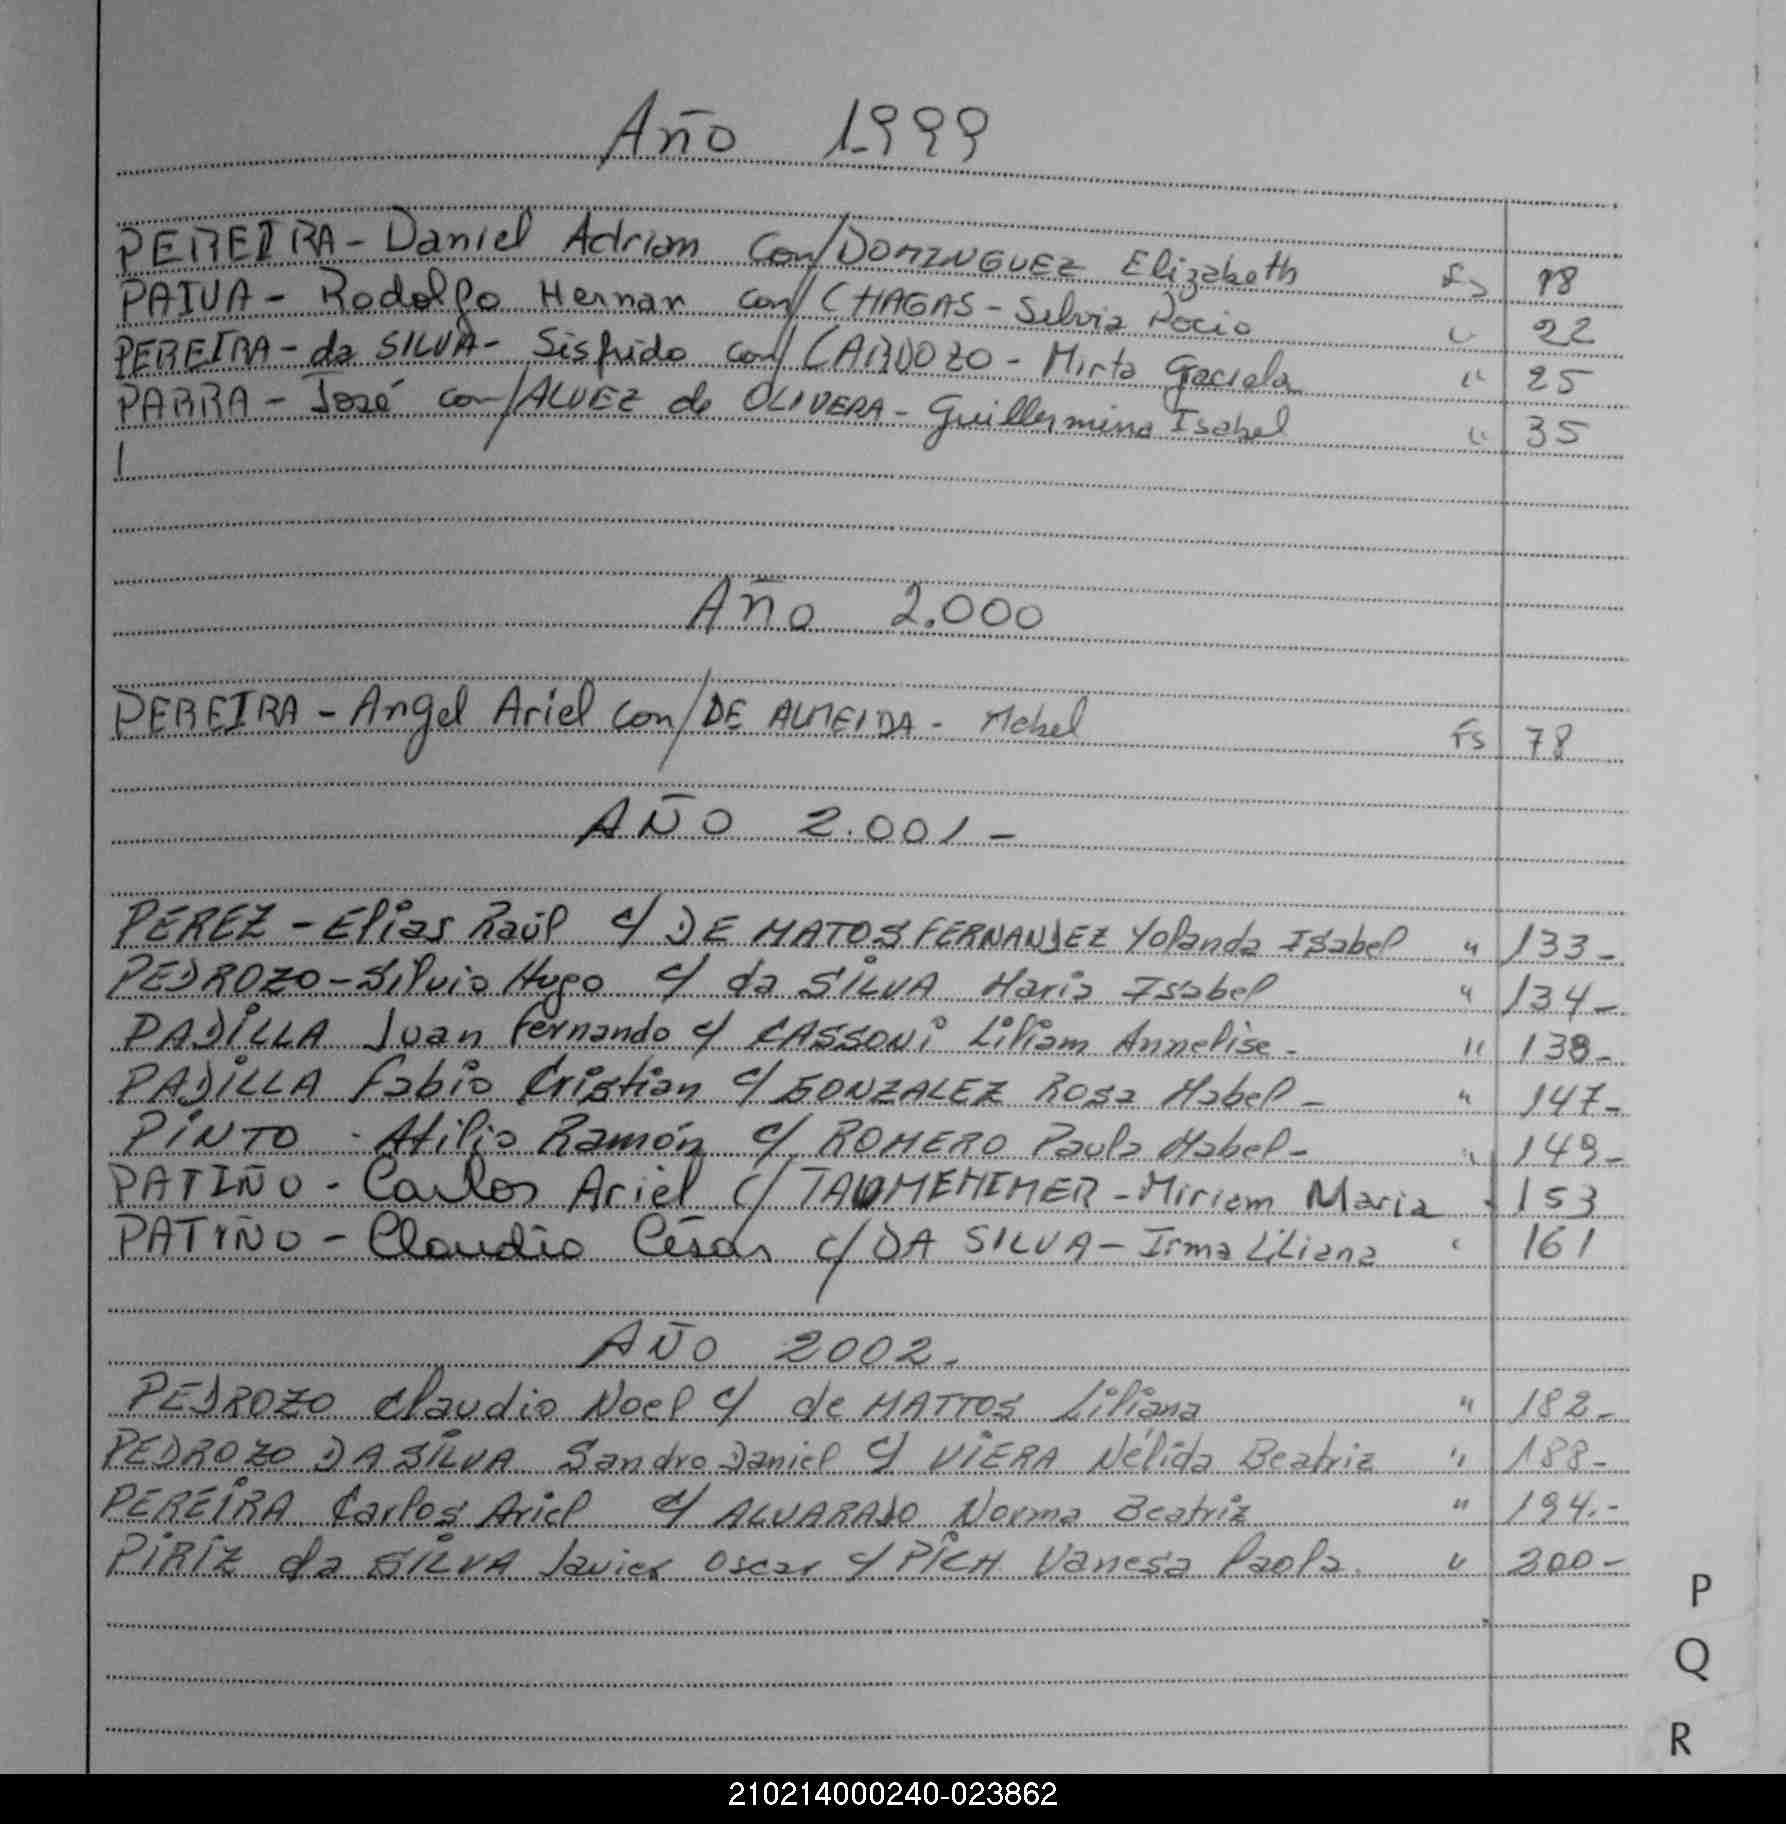 Año 1999
PEREIRA - Daniel Adrian Con/ DOMINGUEZ Elizabeth Fs 18
PAIVA - Rodolfo Hernan con/ CHAGAS - Silvia Rocio " 22
PEREIRA - da SILVA - Sisfrido con/ CARDOZO - Mirta Graciela " 25
PARRA - José con/ ALVEZ de OLIVERA - Guillermina Isabel " 35
Año 2.000
PEREIRA - Angel Ariel con/ DE ALMEIDA - Mabel Fs 78
AÑO 2.001 -
PEREZ - Elias Raúl c/ DE MATOS FERNANDEZ Yolanda Isabel " 133 -
PEDROZO - Silvio Hugo c/ da SILVA Maria Isabel " 134 -
PADILLA Juan Fernando c/ CASSONi Liliam Annelise - " 138 -
PADILLA Fabio Cristian c/ GONZALEZ Rosa Mabel - " 147 -
PINTO - Atilio Ramón c/ ROMERO Paula Mabel - " 149 -
PATIÑO - Carlos Ariel c/ - Miriam Maria " 153
PATIÑO - Claudio César c/ DA SILVA - Irma Liliana " 161
AÑO 2002.
PEDROZO Claudio Noel c/ de MATTOS Liliana " 182 -
PEDROZO DA SILVA Sandro Daniel c/ VIERA Nélida Beatriz " 188 -
PEREIRA Carlos Ariel c/ ALVARADO Norma Beatriz " 194. -
PIRIZ da SILVA Javier Oscar c/ PICH Vanesa Paola. " 200 -
P
Q
R
210214000240-023862